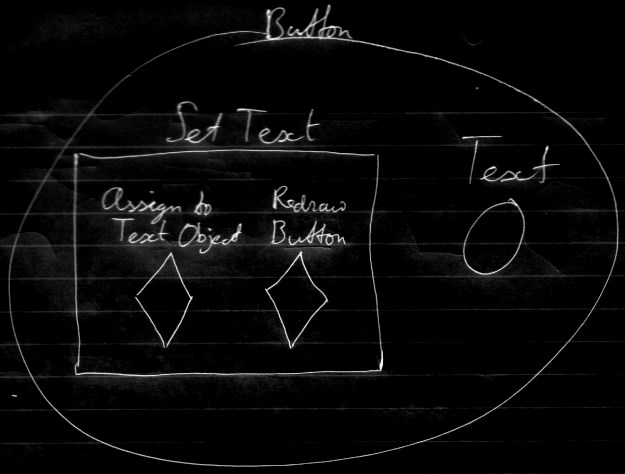 Button
Set Text
Text
Assign to
Text Object
Redraw
Button